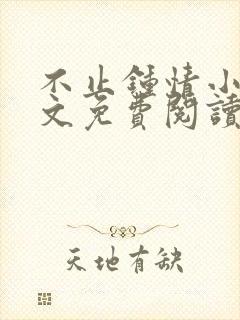 不止鍾情小
文免費閱讀
天地有缺